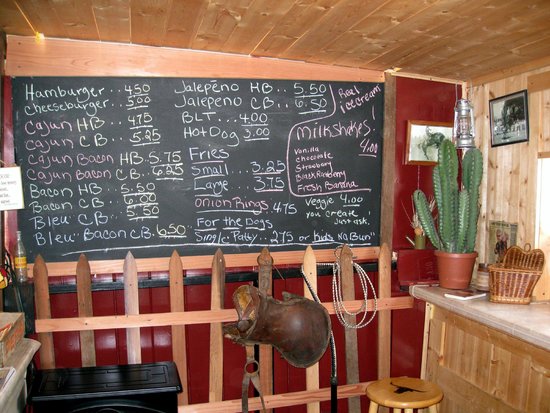 Hamburger .. 4.50
Cheeseburger .. 5.00
Cajun HB .. 4.75
Cajun CB .. 5.25
Cajun Bacon HB .. 5.75
Cajun Bacon CB .. 6.25
Bacon HB ... 5.50
Bacon CB ... 6.00
Bleu CB ... 5.50
Bleu Bacon CB. 6.50
Jalepeno HB .. 5.50
Jalepeno CB .. 6.50
BLT .. 4.00
Hot Dog .. 3.00
Fries
Small ... 3.25
Large .. 3.75
Onion Rings 4.75
For the Dogs
Single Patty ... 2.75 or kids "No Bun"
Real
ice cream
Milkshakes
4.00
Vanilla
chocolate
Strawberry
Black Raspberry
Fresh Banana
Veggie 4.00
you create
Just ask.